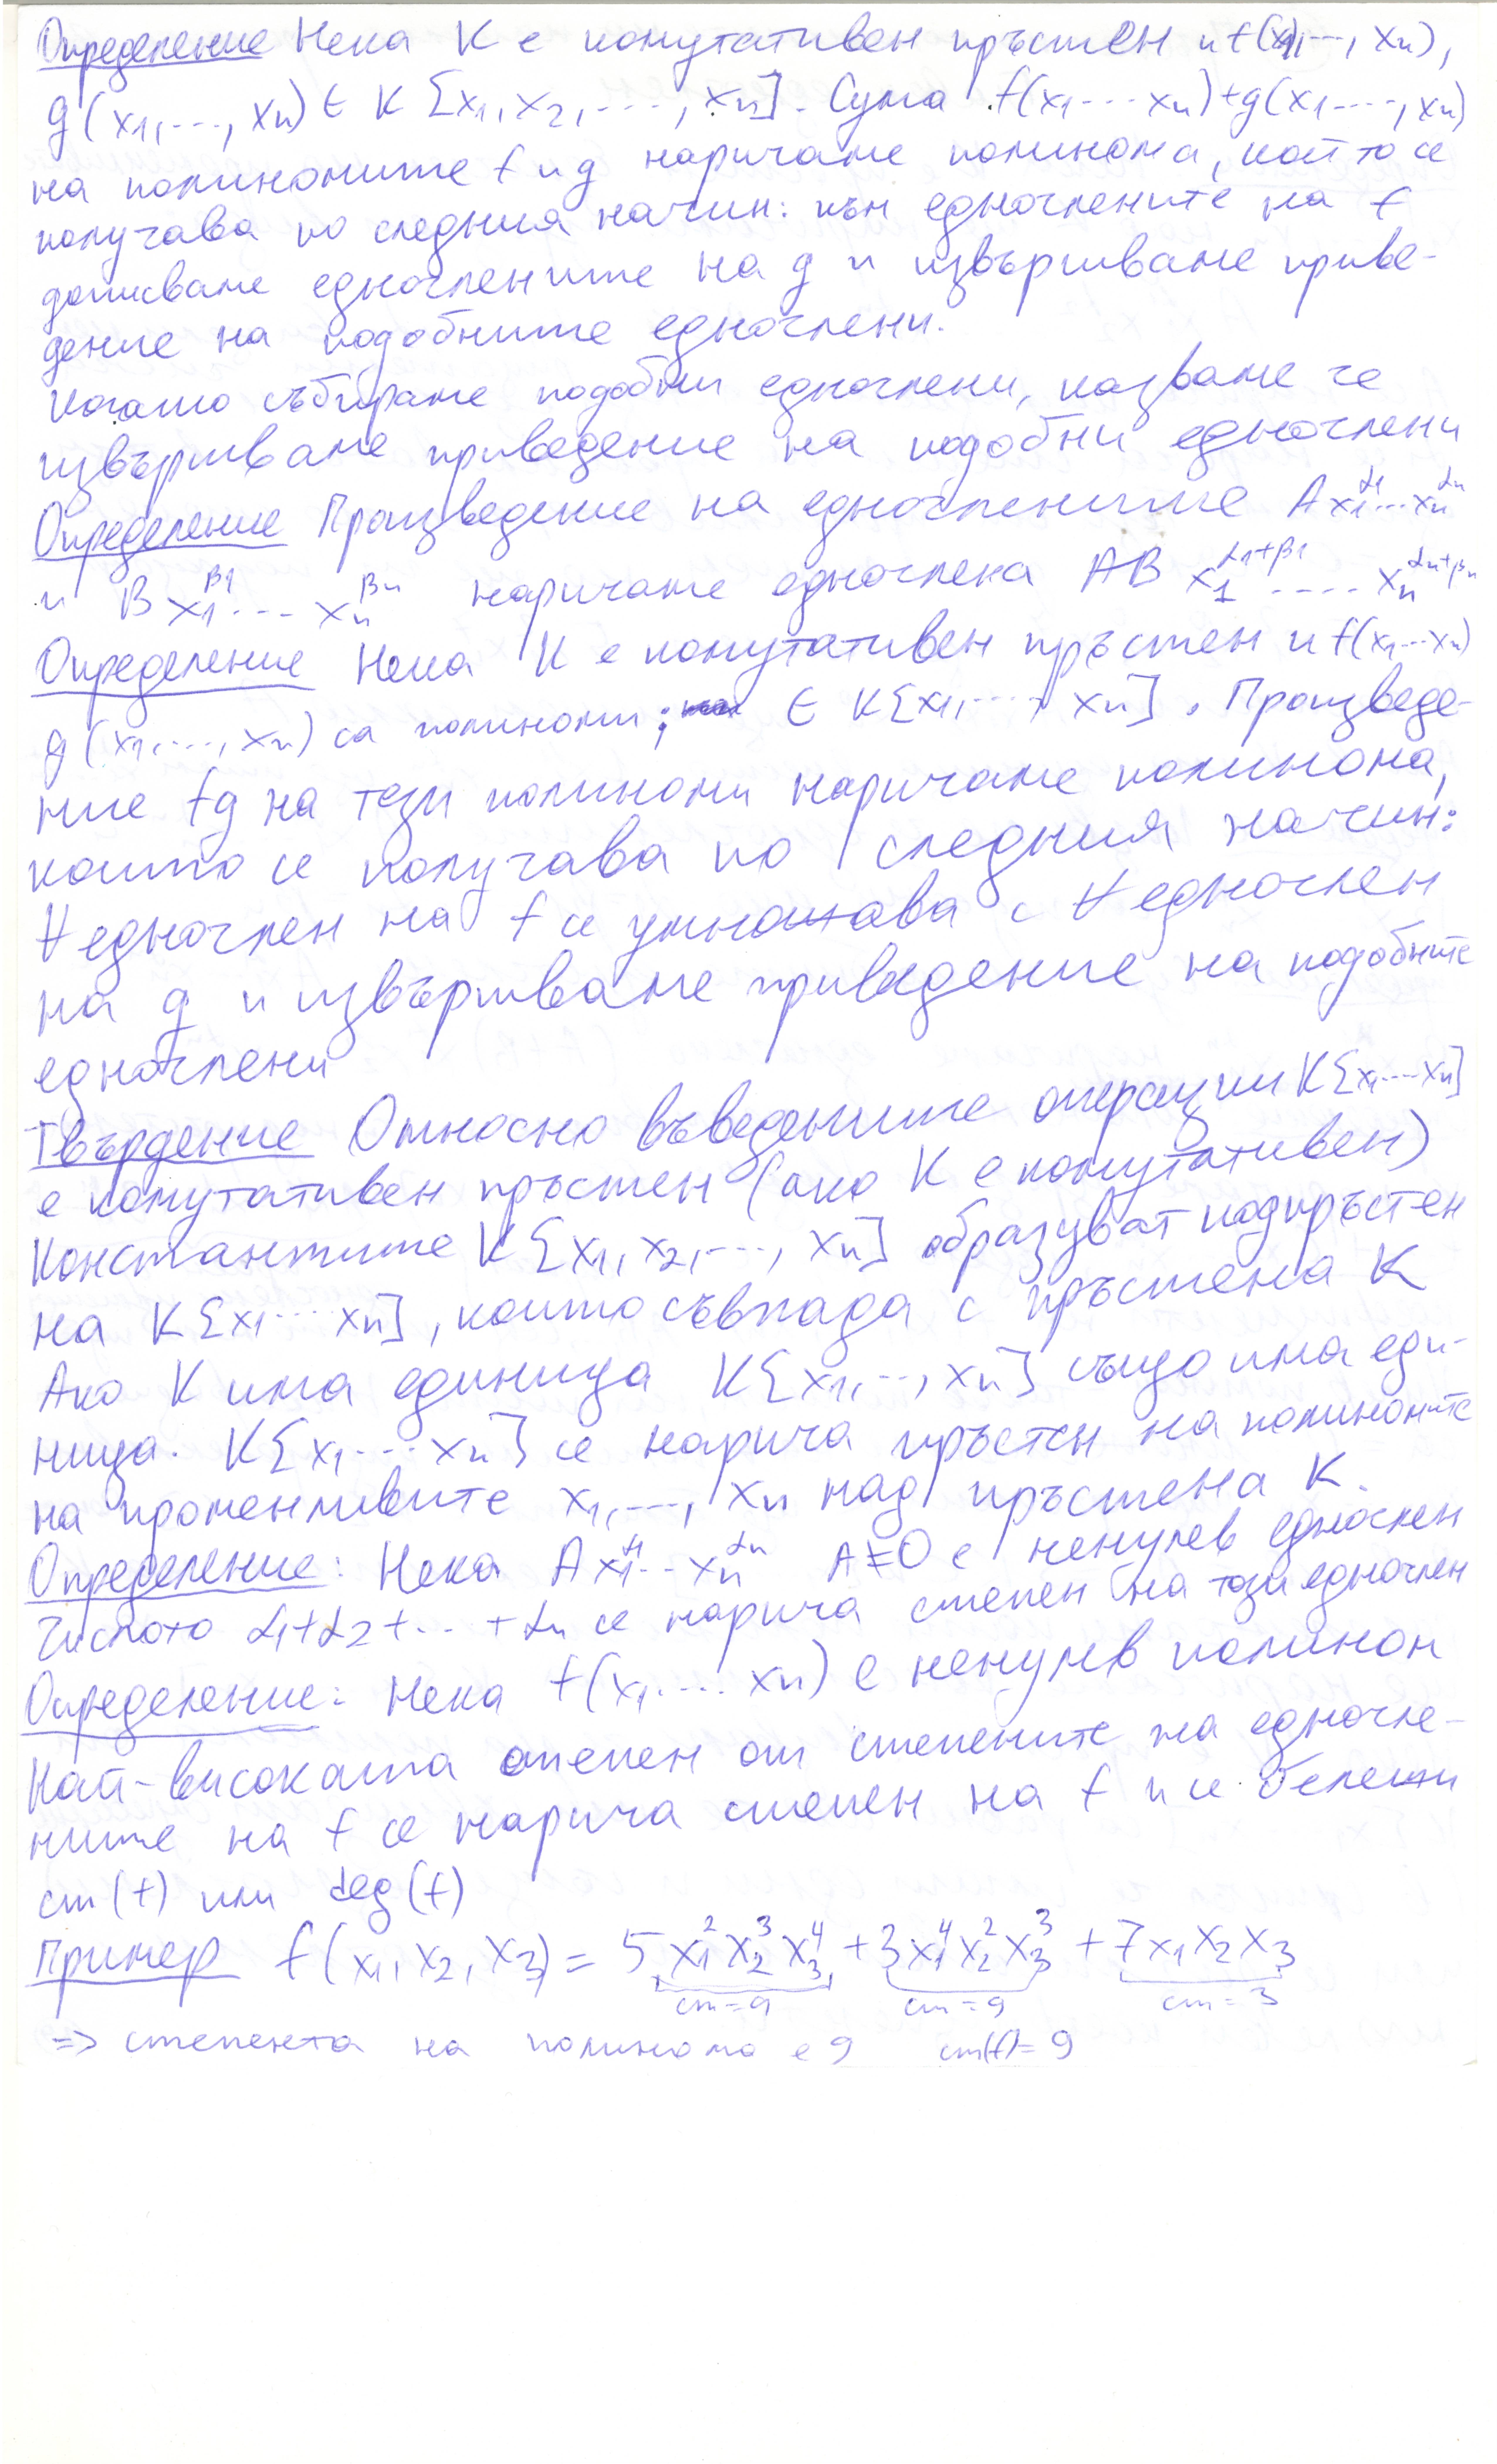 Определение Нека K е комутативен пръстен и f(x1,..., xn),
g(x1,..., xn) ∈ K[x1, x2,..., xn]. Сума f(x1...xn)+g(x1...., xn)
на полиномите f и g наричаме полинома, който се
получава по следния начин: към едночлените на f
дописваме едночлените на g и извършваме приве-
дение на подобните едночлени.
Когато събираме подобни едночлени, казваме че
извършваме приведение на подобни едночлени
Определение Произведение на едночлените A x1^α1...xn^αn
и B x1^β1... xn^βn наричаме едночлена AB x1^α1+β1 .... xn^αn+βn
Определение Нека K е комутативен пръстен и f(x1...xn)
g(x1,..., xn) са полиноми; ∈ K[x1,..., xn]. Произведе-
ние fg на тези полиноми наричаме полинома,
който се получава по следния начин:
∀ едночлен на f се умножава с ∀ едночлен
на g и извършваме приведение на подобните
едночлени
Твърдение Относно въведените операции K[x1...xn]
е комутативен пръстен (ако K е комутативен)
Константите K[x1, x2,..., xn] образуват подпръстен
на K[x1...xn], който съвпада с пръстена K
Ако K има единица K[x1,.., xn] също има еди-
ница. K[x1...xn] се нарича пръстен на полиномите
на променливите x1,..., xn над пръстена K.
Определение: Нека A x1^α1...xn^αn A≠0 е ненулев едночлен
Числото α1+α2+...+αn се нарича степен на този едночлен
Определение: Нека f(x1.... xn) е ненулев полином
Най-високата степен от степените на едночле-
ните на f се нарича степен на f и се бележи
ст(f) или deg(f)
Пример f(x1, x2, x3) = 5x1^2 x2^3 x3^4 + 3x1^4 x2^2 x3^3 + 7x1x2x3
ст=9 ст=9 ст=3
=> степента на полинома е 9 ст(f)=9